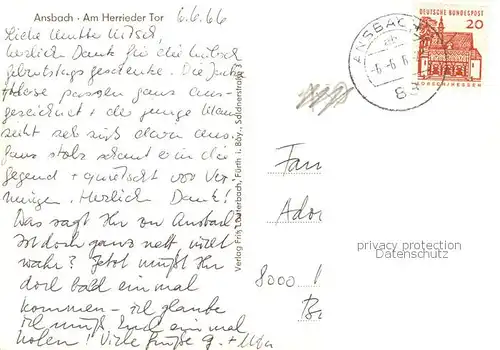 Ansbach · Am Herrieder Tor 6.6.66
Liebe Mutter
herzlichen Dank für die hübschen
Geburtstagsgeschenke. Die Jacke +
Hose passen ganz aus-
gezeichnet + der junge Mann
sieht sehr süß darin aus.
Ganz stolz schaut er in die
Gegend + quietscht vor Ver-
gnügen. Herzlichen Dank!
Was sagt Ihr zu Ansbach
Ist doch ganz nett, nicht
wahr? Jetzt müßt Ihr
doch bald einmal
kommen – ich glaube
ich muß Euch einmal
holen! Viele Grüße
Verlag Fritz Lauterbach, Fürth i. Bay., Soldnerstraße 3
ANSBACH
-6.-6.6
8
DEUTSCHE BUNDESPOST
20
LORSCH/HESSEN
Fam
Ador
8000
privacy protection
Datenschutz